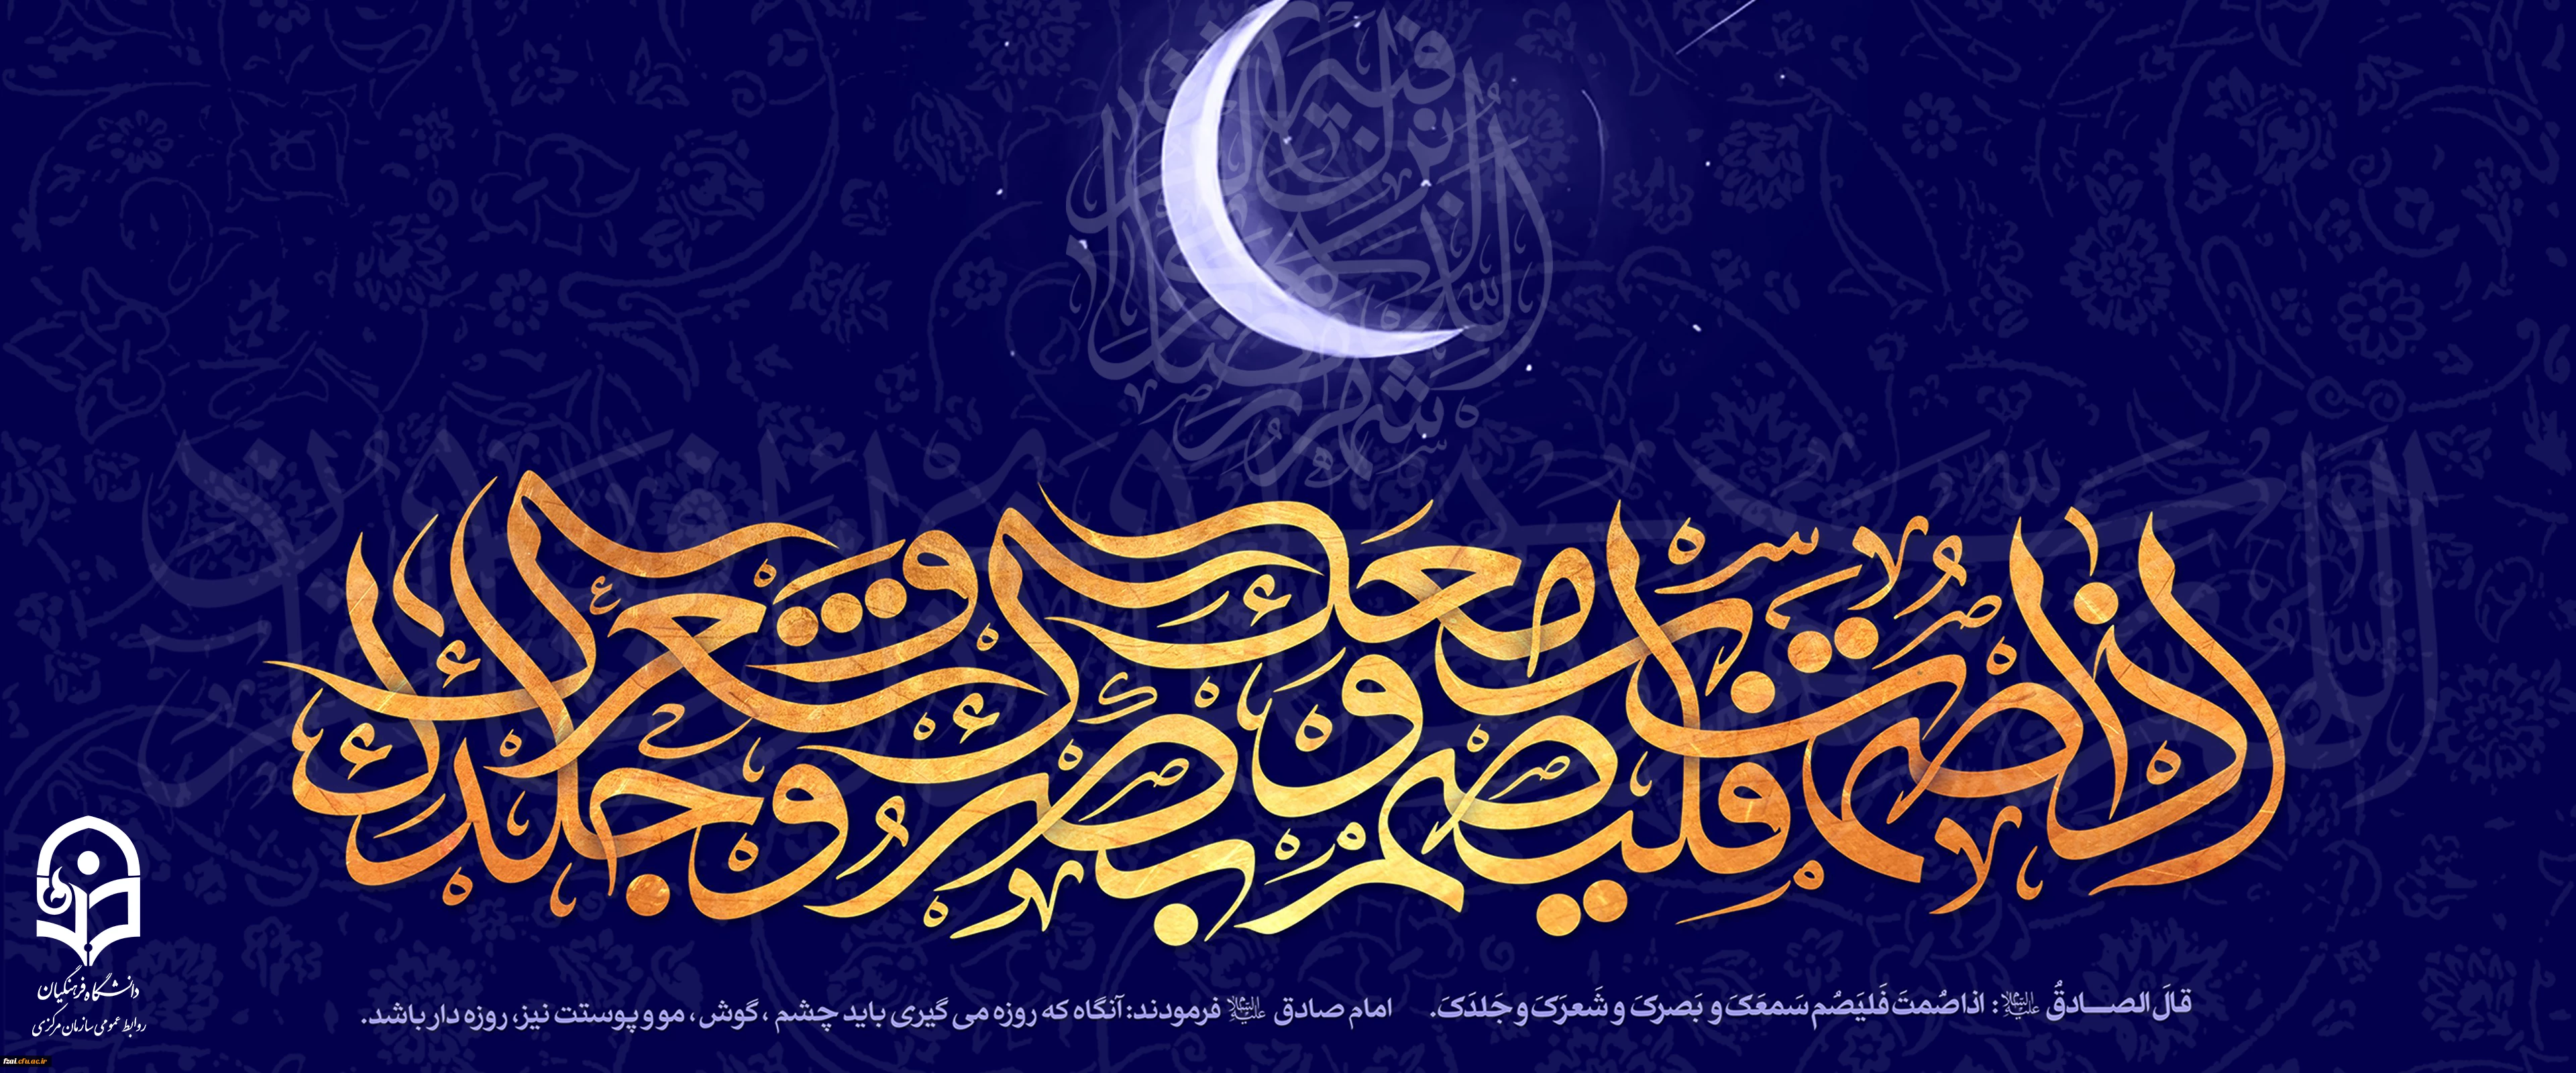 اذا صمت فلیصم سمعک و بصرک و شعرک و جلدک
قالَ الصـــادقُ علیه‌السلام : اذا صُمتَ فَلیَصُم سَمعَکَ و بَصرکَ و شَعرَکَ و جَلدَکَ.
امام صادق علیه‌السلام فرمودند: آنگاه که روزه می گیری باید چشم ، گوش ، مو و پوستت نیز، روزه دار باشد.
دانشگاه فرهنگیان
روابط عمومی سازمان مرکزی
fzai.cfu.ac.ir